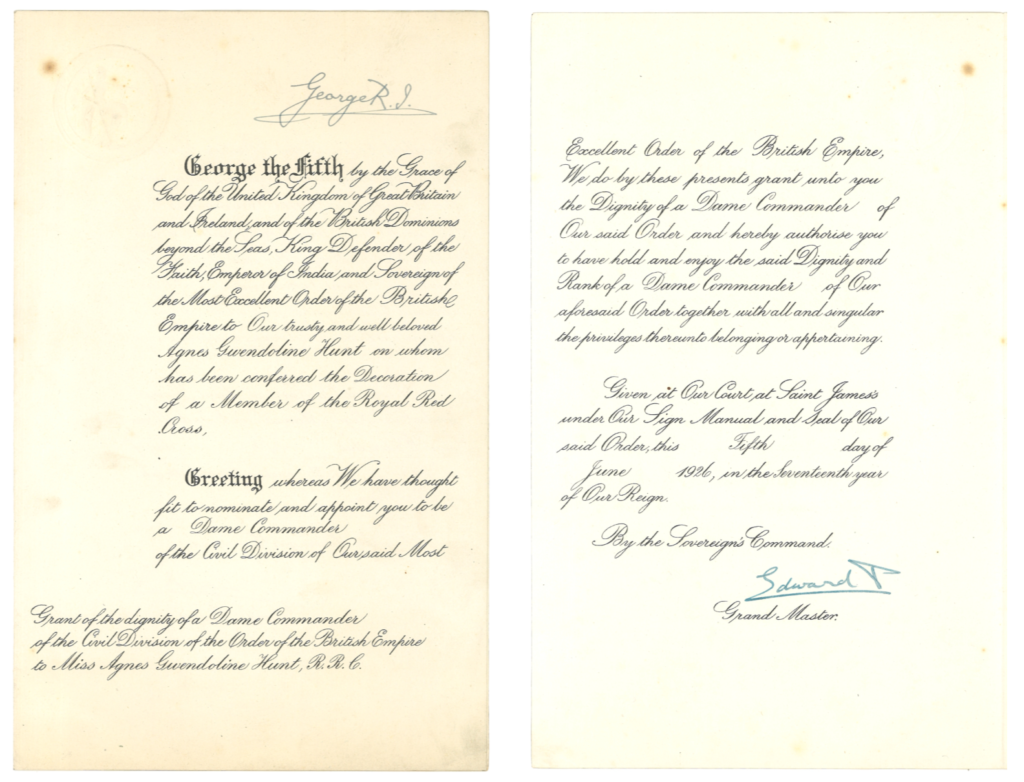 George R. I.
George the Fifth by the Grace of
God of the United Kingdom of Great Britain
and Ireland, and of the British Dominions
beyond the Seas, King Defender of the
Faith, Emperor of India and Sovereign of
the Most Excellent Order of the British
Empire to Our trusty and well beloved
Agnes Gwendoline Hunt on whom
has been conferred the Decoration
of a Member of the Royal Red
Cross,
Greeting whereas We have thought
fit to nominate and appoint you to be
a Dame Commander
of the Civil Division of Our said Most
Grant of the dignity of a Dame Commander
of the Civil Division of the Order of the British Empire
to Miss Agnes Gwendoline Hunt, R.R.C.
Excellent Order of the British Empire,
We do by these presents grant unto you
the Dignity of a Dame Commander of
Our said Order and hereby authorise you
to have hold and enjoy the said Dignity and
Rank of a Dame Commander of Our
aforesaid Order together with all and singular
the privileges thereunto belonging or appertaining.
Given at Our Court at Saint James's
under Our Sign Manual and Seal of Our
said Order, this Fifth day of
June 1926, in the Seventeenth year
of Our Reign.
By the Sovereign's Command.
Edward P
Grand Master.